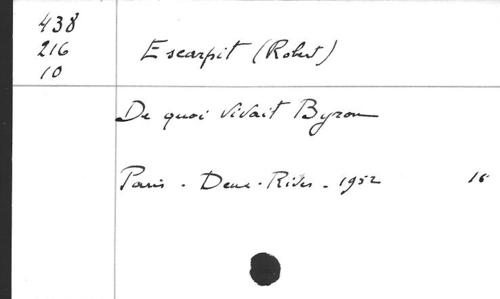 438
216
10
Escarpit (Robert)
De quoi vivait Byron
Paris - Deux-Rives - 1952 16